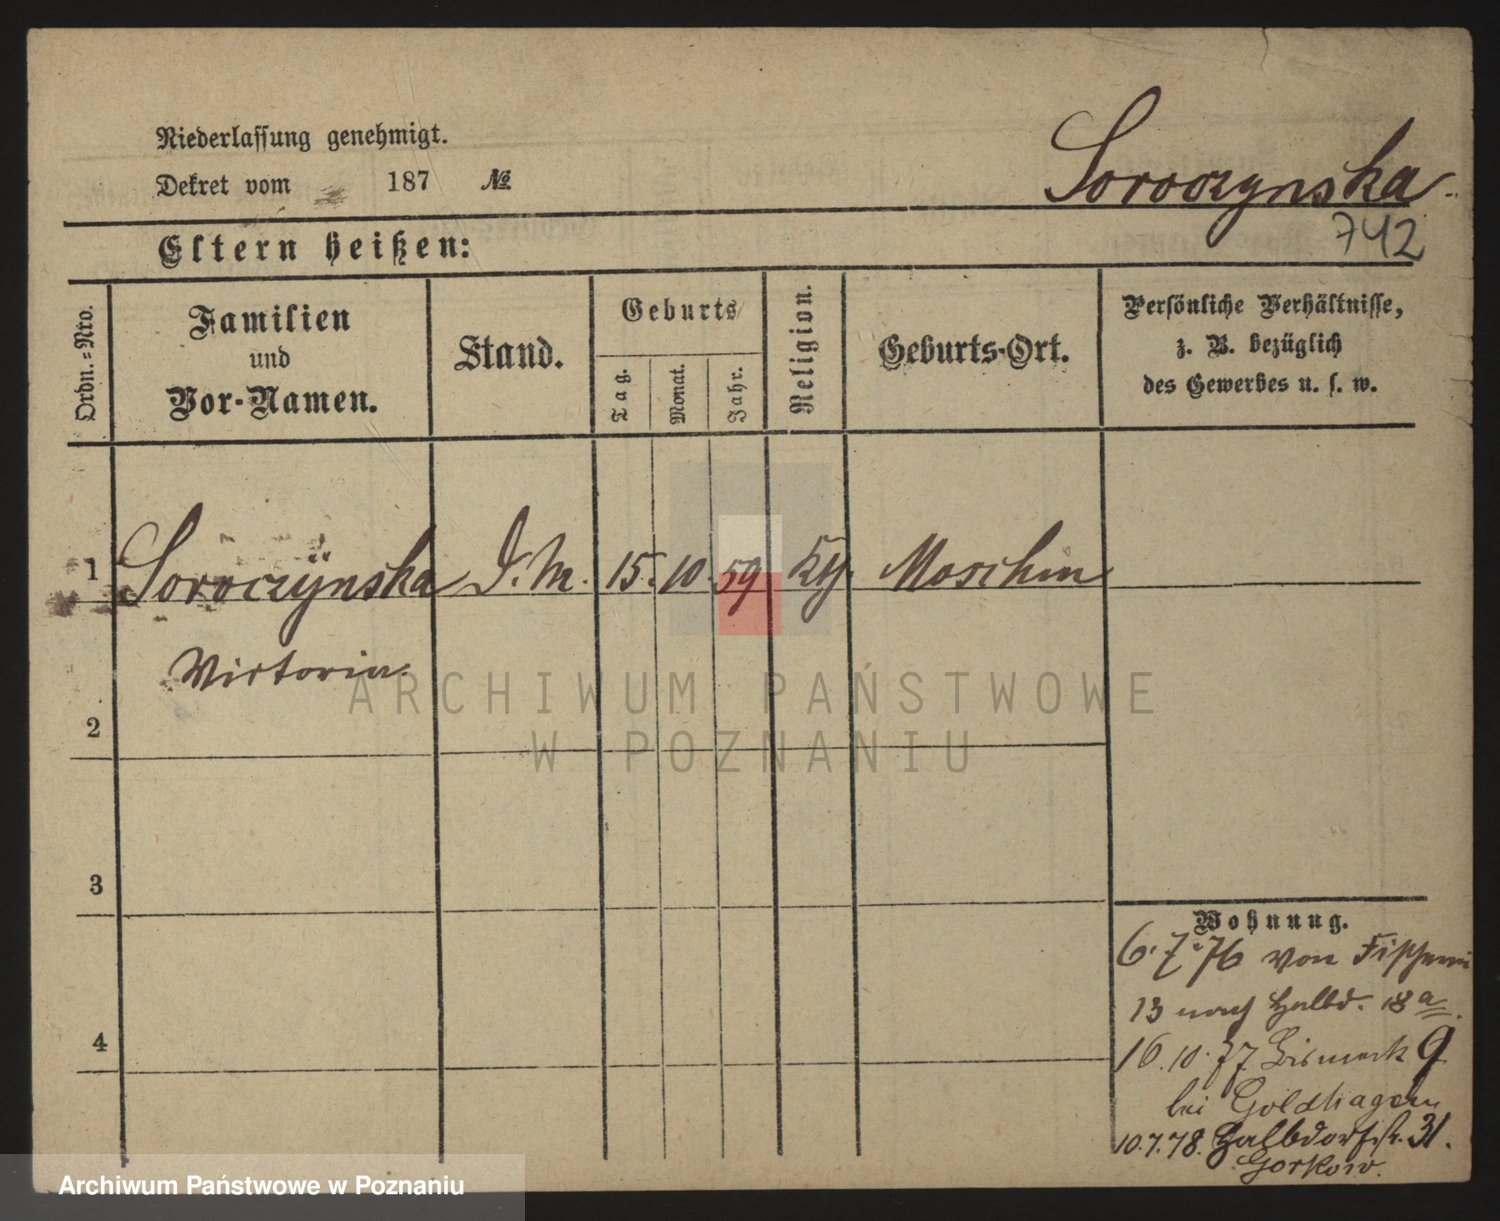 Niederlassung genehmigt.
Dekret vom 187 №
Soroczynska
742
Eltern heißen:
Ordn.=Nro.
Familien
und
Vor-Namen.
Stand.
Geburts
Tag.
Monat.
Jahr.
Religion.
Geburts-Ort.
Persönliche Verhältnisse,
z. B. bezüglich
des Gewerbes u. s. w.
1 Soroczÿnska D. M. 15. 10. 59 Moschin
Victoria.
2
3
4
Wohnung.
6.7.76 von
13 nach Halbd. 18a.
16.10.77 Bismark 9
bei Goldhagen
10.7.78. Halbdorfstr. 31.
Gorkow.
ARCHIWUM PAŃSTWOWE
W POZNANIU
Archiwum Państwowe w Poznaniu